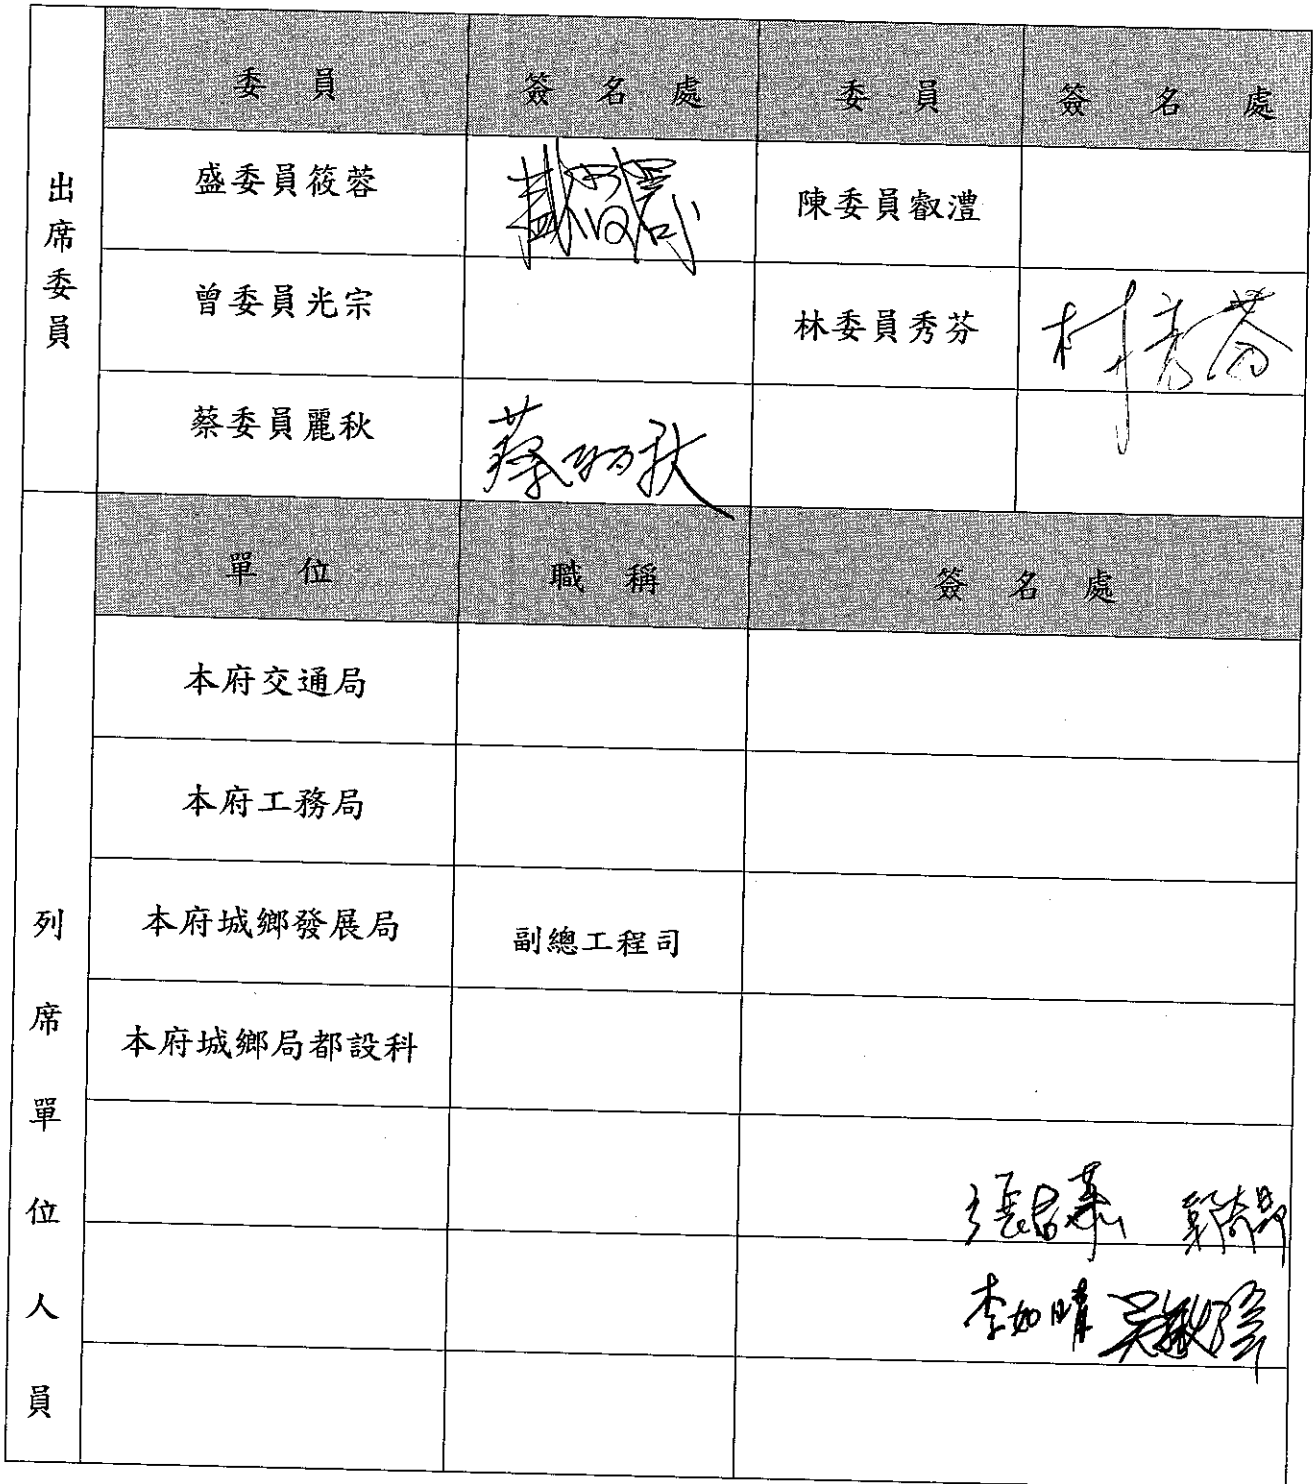 出席委員
委員 簽名處 委員 簽名處
盛委員筱蓉 陳委員叡澧
曾委員光宗 林委員秀芬 林秀芬
蔡委員麗秋 蔡麗秋
列席單位人員
單位 職稱 簽名處
本府交通局
本府工務局
本府城鄉發展局 副總工程司
本府城鄉局都設科
李如晴